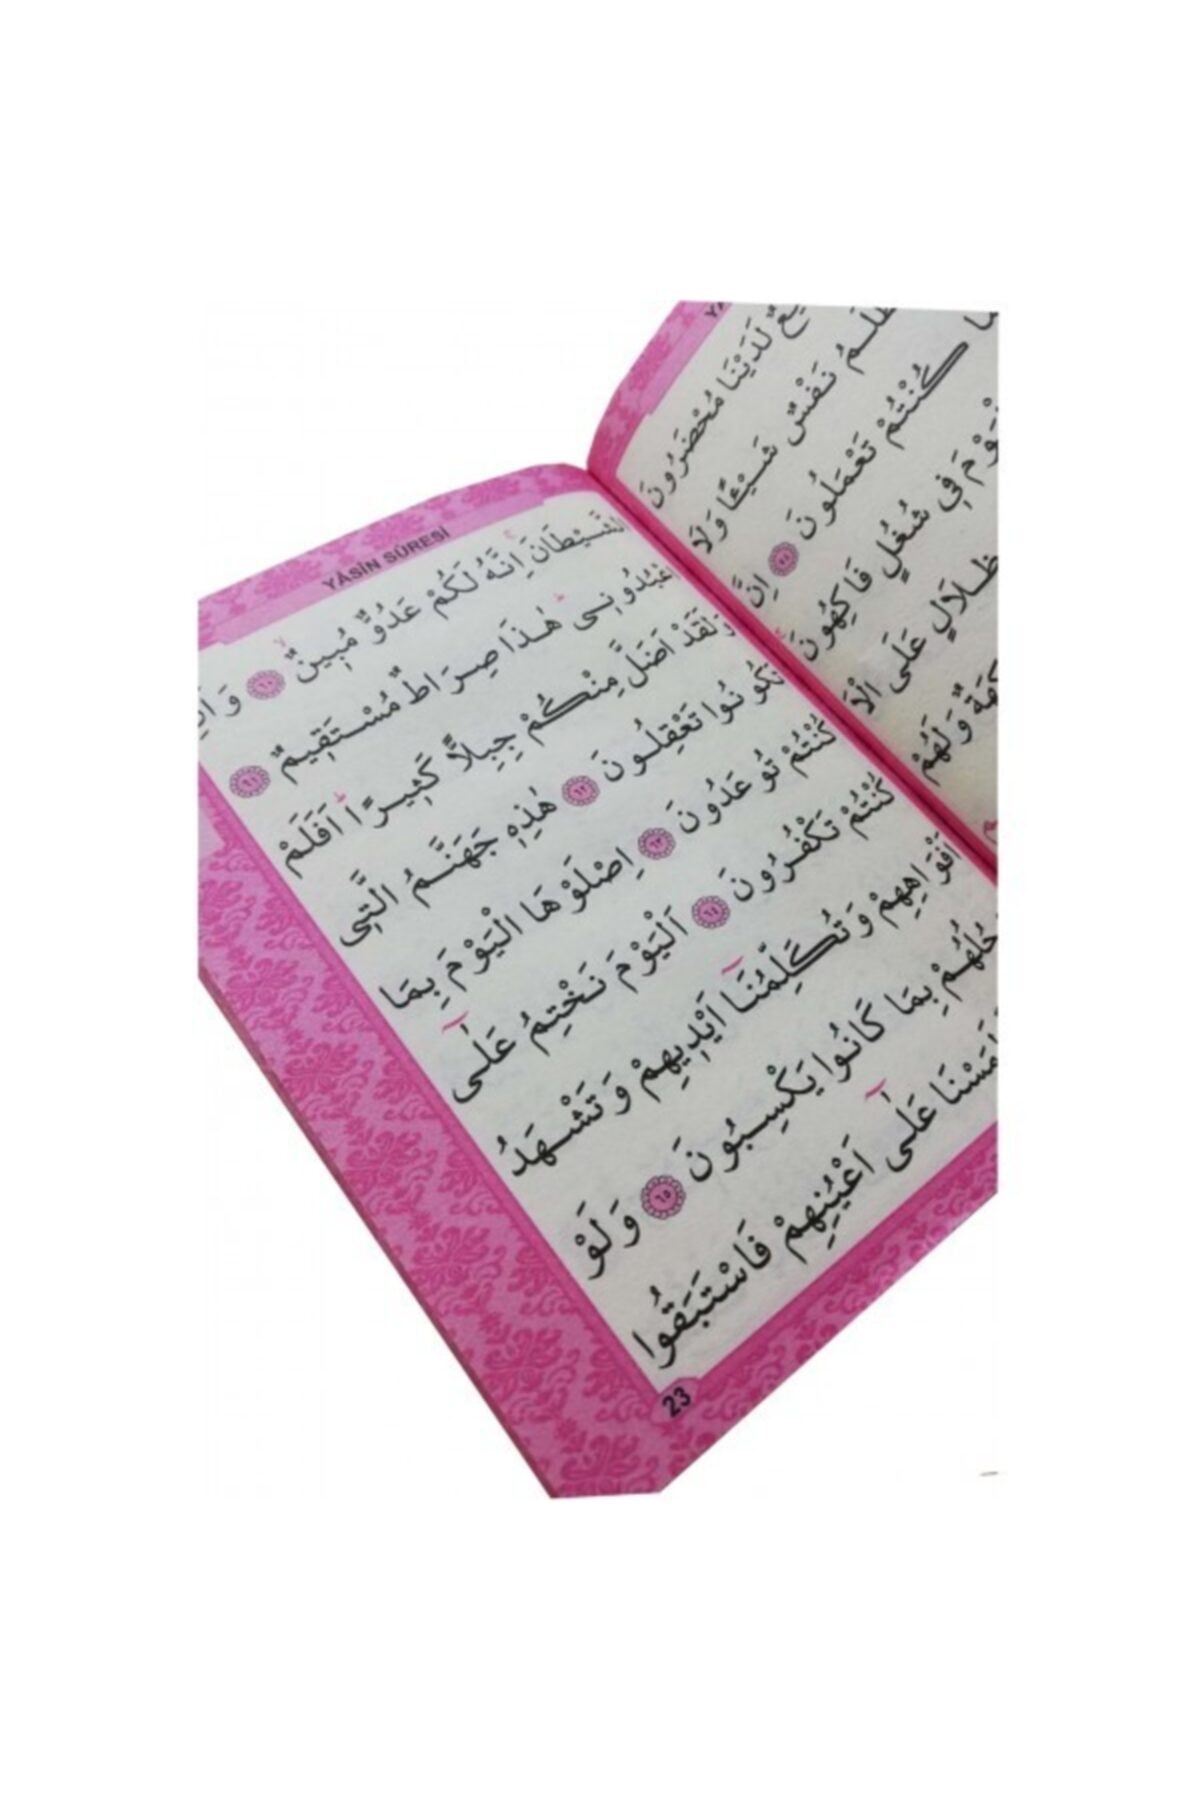 لَدَيْنَا مُحْضَرُونَ
نَفْسٌ شَيْئًا وَلَا
كُنْتُمْ تَعْمَلُونَ ٥٤ اِنَّ
فِي شُغُلٍ فَاكِهُونَ
ظِلَالٍ عَلَى
وَلَهُمْ
YÂSİN SÛRESİ
الشَّيْطَانَ اِنَّهُ لَكُمْ عَدُوٌّ مُبِينٌ ٦٠
اعْبُدُونِى هٰذَا صِرَاطٌ مُسْتَقِيمٌ ٦١
وَلَقَدْ اَضَلَّ مِنْكُمْ جِبِلًّا كَثِيرًا اَفَلَمْ
تَكُونُوا تَعْقِلُونَ ٦٢ هٰذِهِ جَهَنَّمُ الَّتِى
كُنْتُمْ تُوعَدُونَ ٦٣ اِصْلَوْهَا الْيَوْمَ بِمَا
كُنْتُمْ تَكْفُرُونَ ٦٤ اَلْيَوْمَ نَخْتِمُ عَلٰٓى
اَفْوَاهِهِمْ وَتُكَلِّمُنَٓا اَيْدِيهِمْ وَتَشْهَدُ
بِمَا كَانُوا يَكْسِبُونَ ٦٥ وَلَوْ
عَلٰٓى اَعْيُنِهِمْ فَاسْتَبَقُوا
23